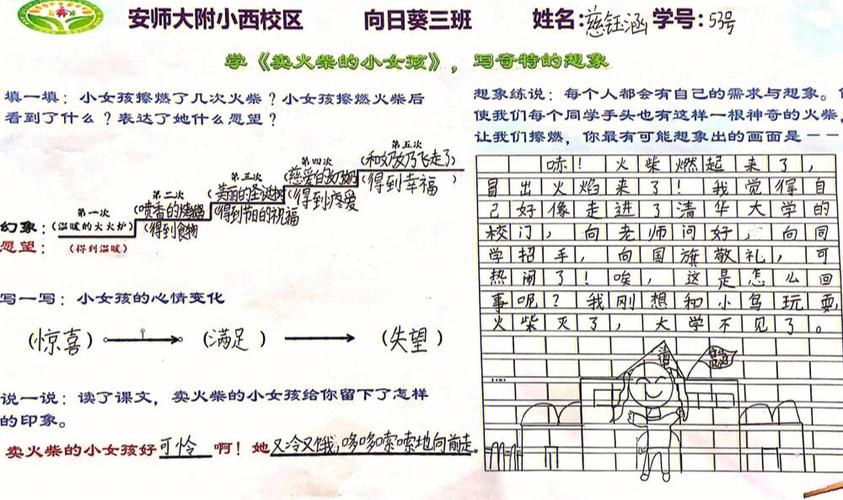 安师大附小西校区 向日葵三班 姓名:慈钰涵 学号:53号
学《卖火柴的小女孩》，写奇特的想象
填一填：小女孩擦燃了几次火柴？小女孩擦燃火柴后
看到了什么？表达了她什么愿望？
第一次 第二次 第三次 第四次 第五次
幻象：(温暖的大火炉) (喷香的烤鹅) (美丽的圣诞树) (慈爱的奶奶) (和奶奶飞走了)
愿望：(得到温暖) (得到食物) (得到节日的祝福) (得到疼爱) (得到幸福)
写一写：小女孩的心情变化
(惊喜) (满足) (失望)
说一说：读了课文，卖火柴的小女孩给你留下了怎样
的印象。
卖火柴的小女孩好可怜啊！她又冷又饿，哆哆嗦嗦地向前走。
想象练说：每个人都会有自己的需求与想象。
使我们每个同学手头也有这样一根神奇的火柴，
让我们擦燃，你最有可能想象出的画面是－－
哧！火柴燃起来了，
冒出火焰来了！我觉得自
己好像走进了清华大学的
校门，向老师问好，向同
学招手，向国旗敬礼，可
热闹了！唉，这是怎么回
事呢？我刚想和小鸟玩耍
火柴灭了，大学不见了。